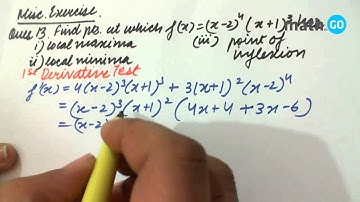 Misc. Exercise.
Ques 13. Find pts. at which f(x) = (x-2)⁴ (x+1)³ has
i) local maxima (iii) point of
ii) local minima inflexion
1st Derivative Test
f'(x) = 4(x-2)³(x+1)³ + 3(x+1)²(x-2)⁴
= (x-2)³(x+1)² (4x+4 + 3x-6)
= (x-2)
GO